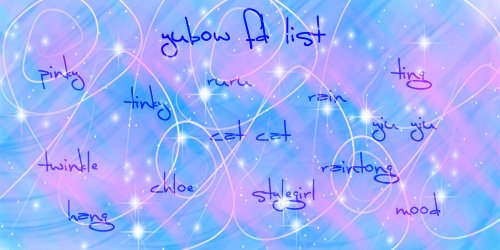 yubow fd list
pinky
ruru
ting
tinky
rain
yiu yiu
cat cat
twinkle
raintong
chloe
stylegirl
hang
mood